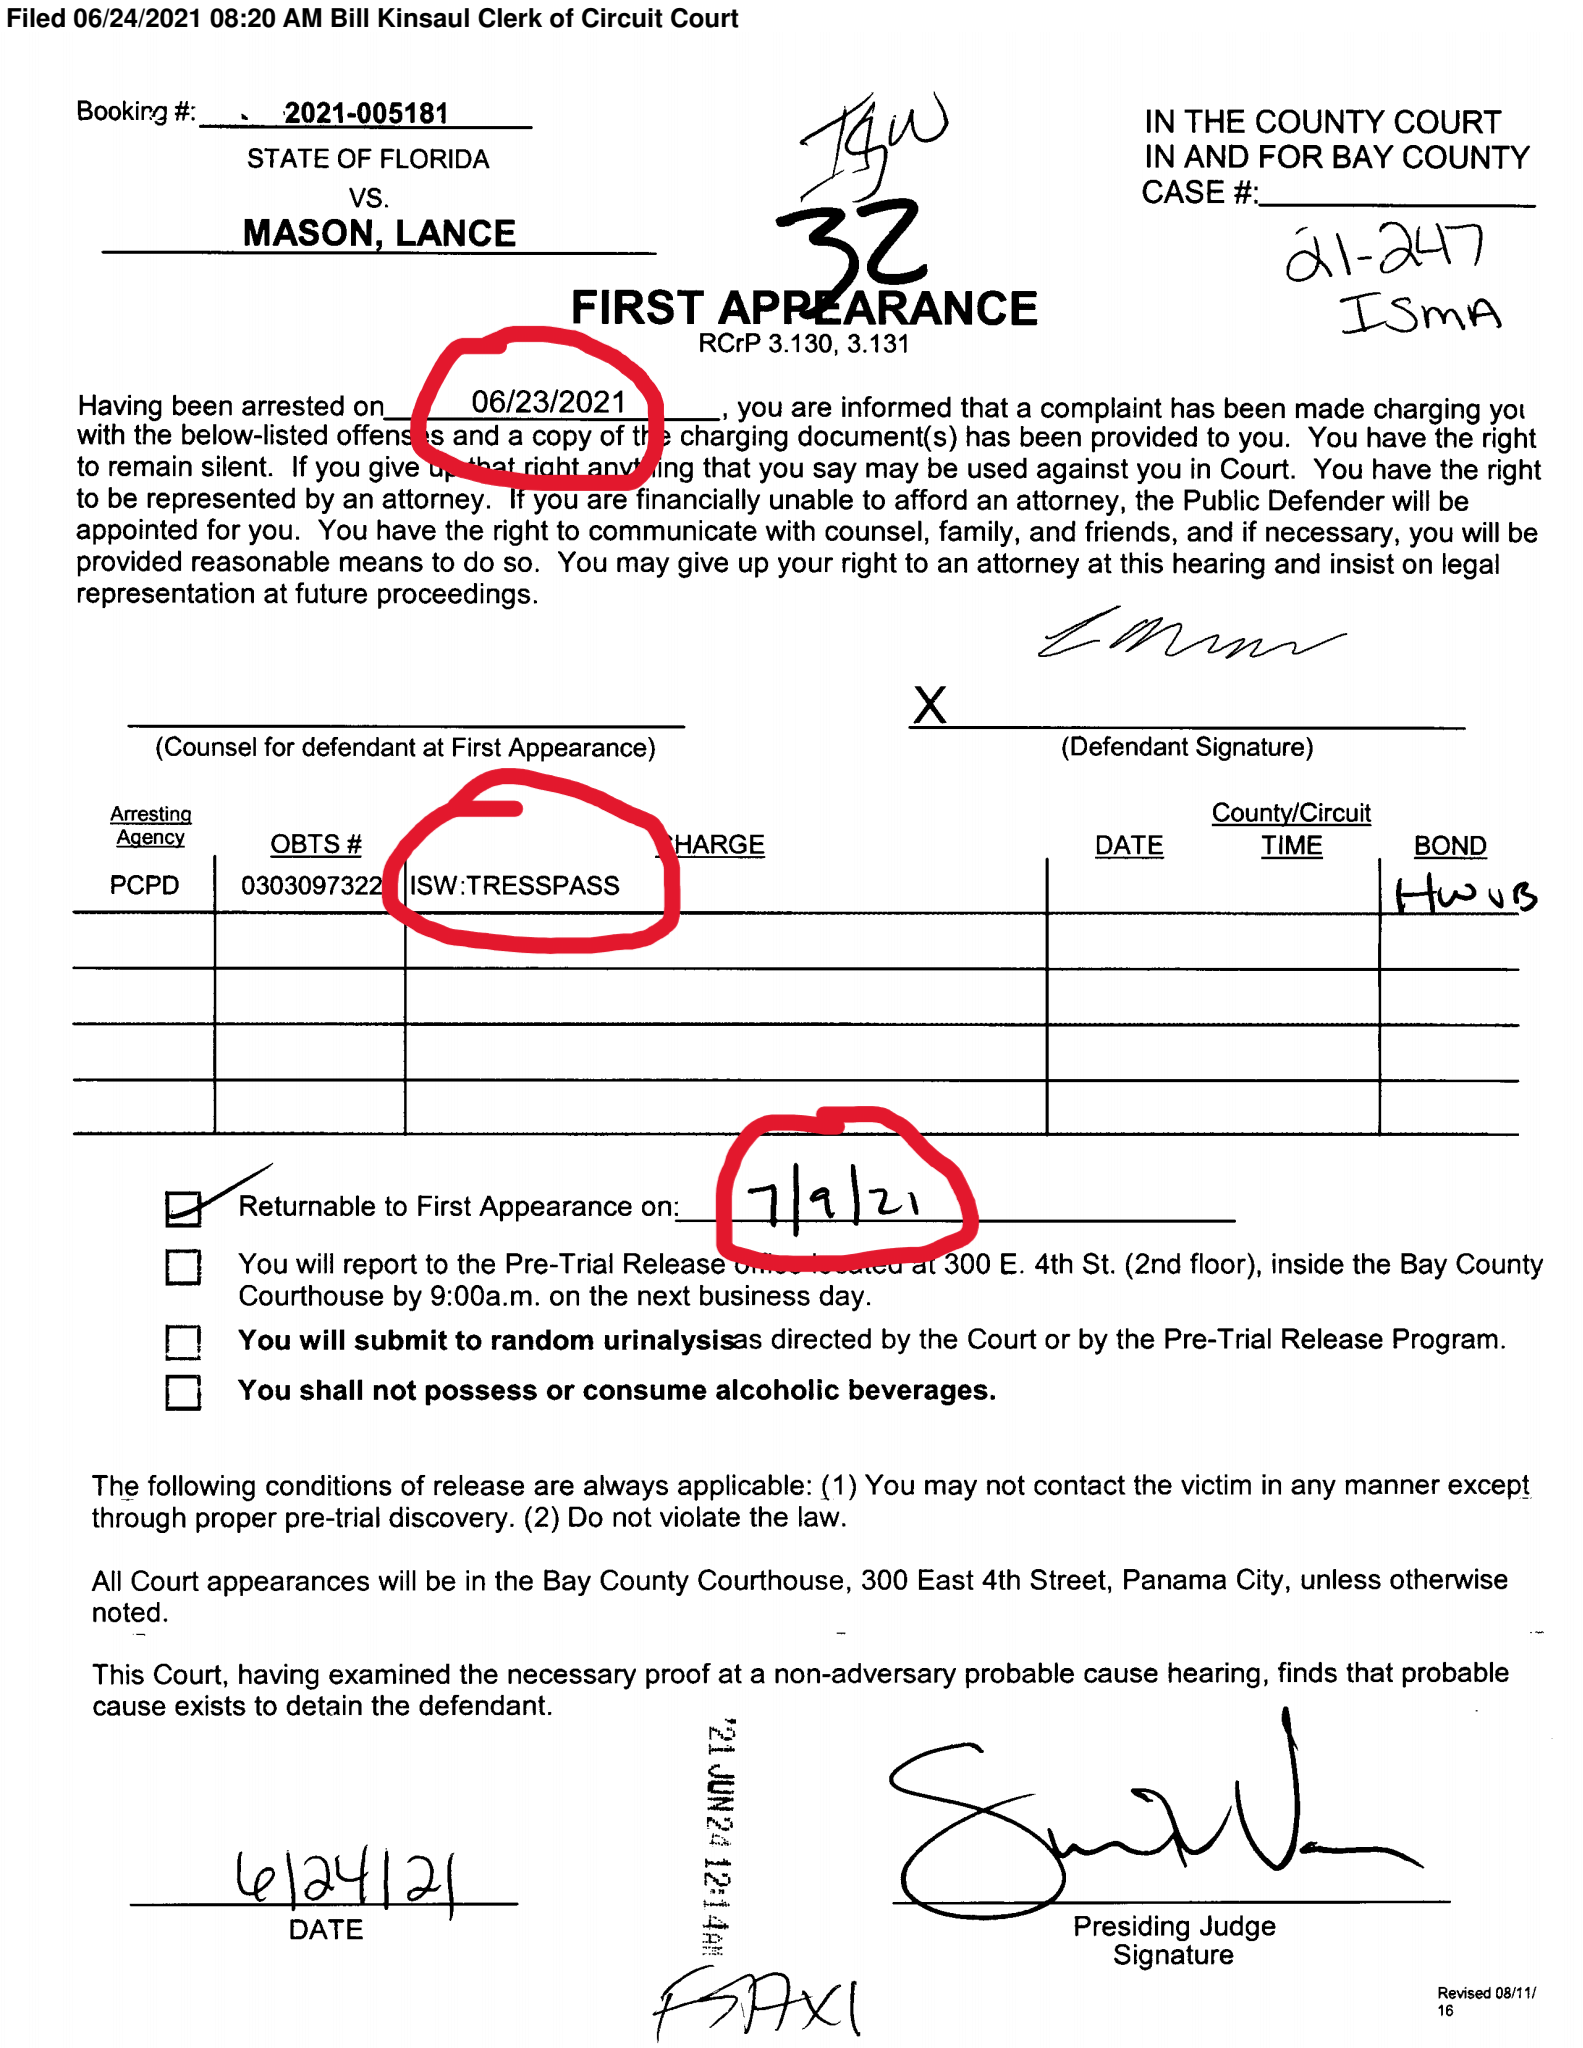 Filed 06/24/2021 08:20 AM Bill Kinsaul Clerk of Circuit Court
Booking #: 2021-005181
STATE OF FLORIDA
VS.
MASON, LANCE
ISW
32
IN THE COUNTY COURT
IN AND FOR BAY COUNTY
CASE #:
21-247
ISMA
FIRST APPEARANCE
RCrP 3.130, 3.131
Having been arrested on 06/23/2021, you are informed that a complaint has been made charging you
with the below-listed offenses and a copy of the charging document(s) has been provided to you. You have the right
to remain silent. If you give up that right anything that you say may be used against you in Court. You have the right
to be represented by an attorney. If you are financially unable to afford an attorney, the Public Defender will be
appointed for you. You have the right to communicate with counsel, family, and friends, and if necessary, you will be
provided reasonable means to do so. You may give up your right to an attorney at this hearing and insist on legal
representation at future proceedings.
X
(Counsel for defendant at First Appearance) (Defendant Signature)
Arresting Agency OBTS # CHARGE DATE County/Circuit TIME BOND
PCPD 0303097322 ISW:TRESSPASS HWVB
Returnable to First Appearance on: 7/9/21
You will report to the Pre-Trial Release office located at 300 E. 4th St. (2nd floor), inside the Bay County
Courthouse by 9:00a.m. on the next business day.
You will submit to random urinalysisas directed by the Court or by the Pre-Trial Release Program.
You shall not possess or consume alcoholic beverages.
The following conditions of release are always applicable: (1) You may not contact the victim in any manner except
through proper pre-trial discovery. (2) Do not violate the law.
All Court appearances will be in the Bay County Courthouse, 300 East 4th Street, Panama City, unless otherwise
noted.
This Court, having examined the necessary proof at a non-adversary probable cause hearing, finds that probable
cause exists to detain the defendant.
'21 JUN 24 12:14AM
6/24/21
DATE
Presiding Judge
Signature
Revised 08/11/
16